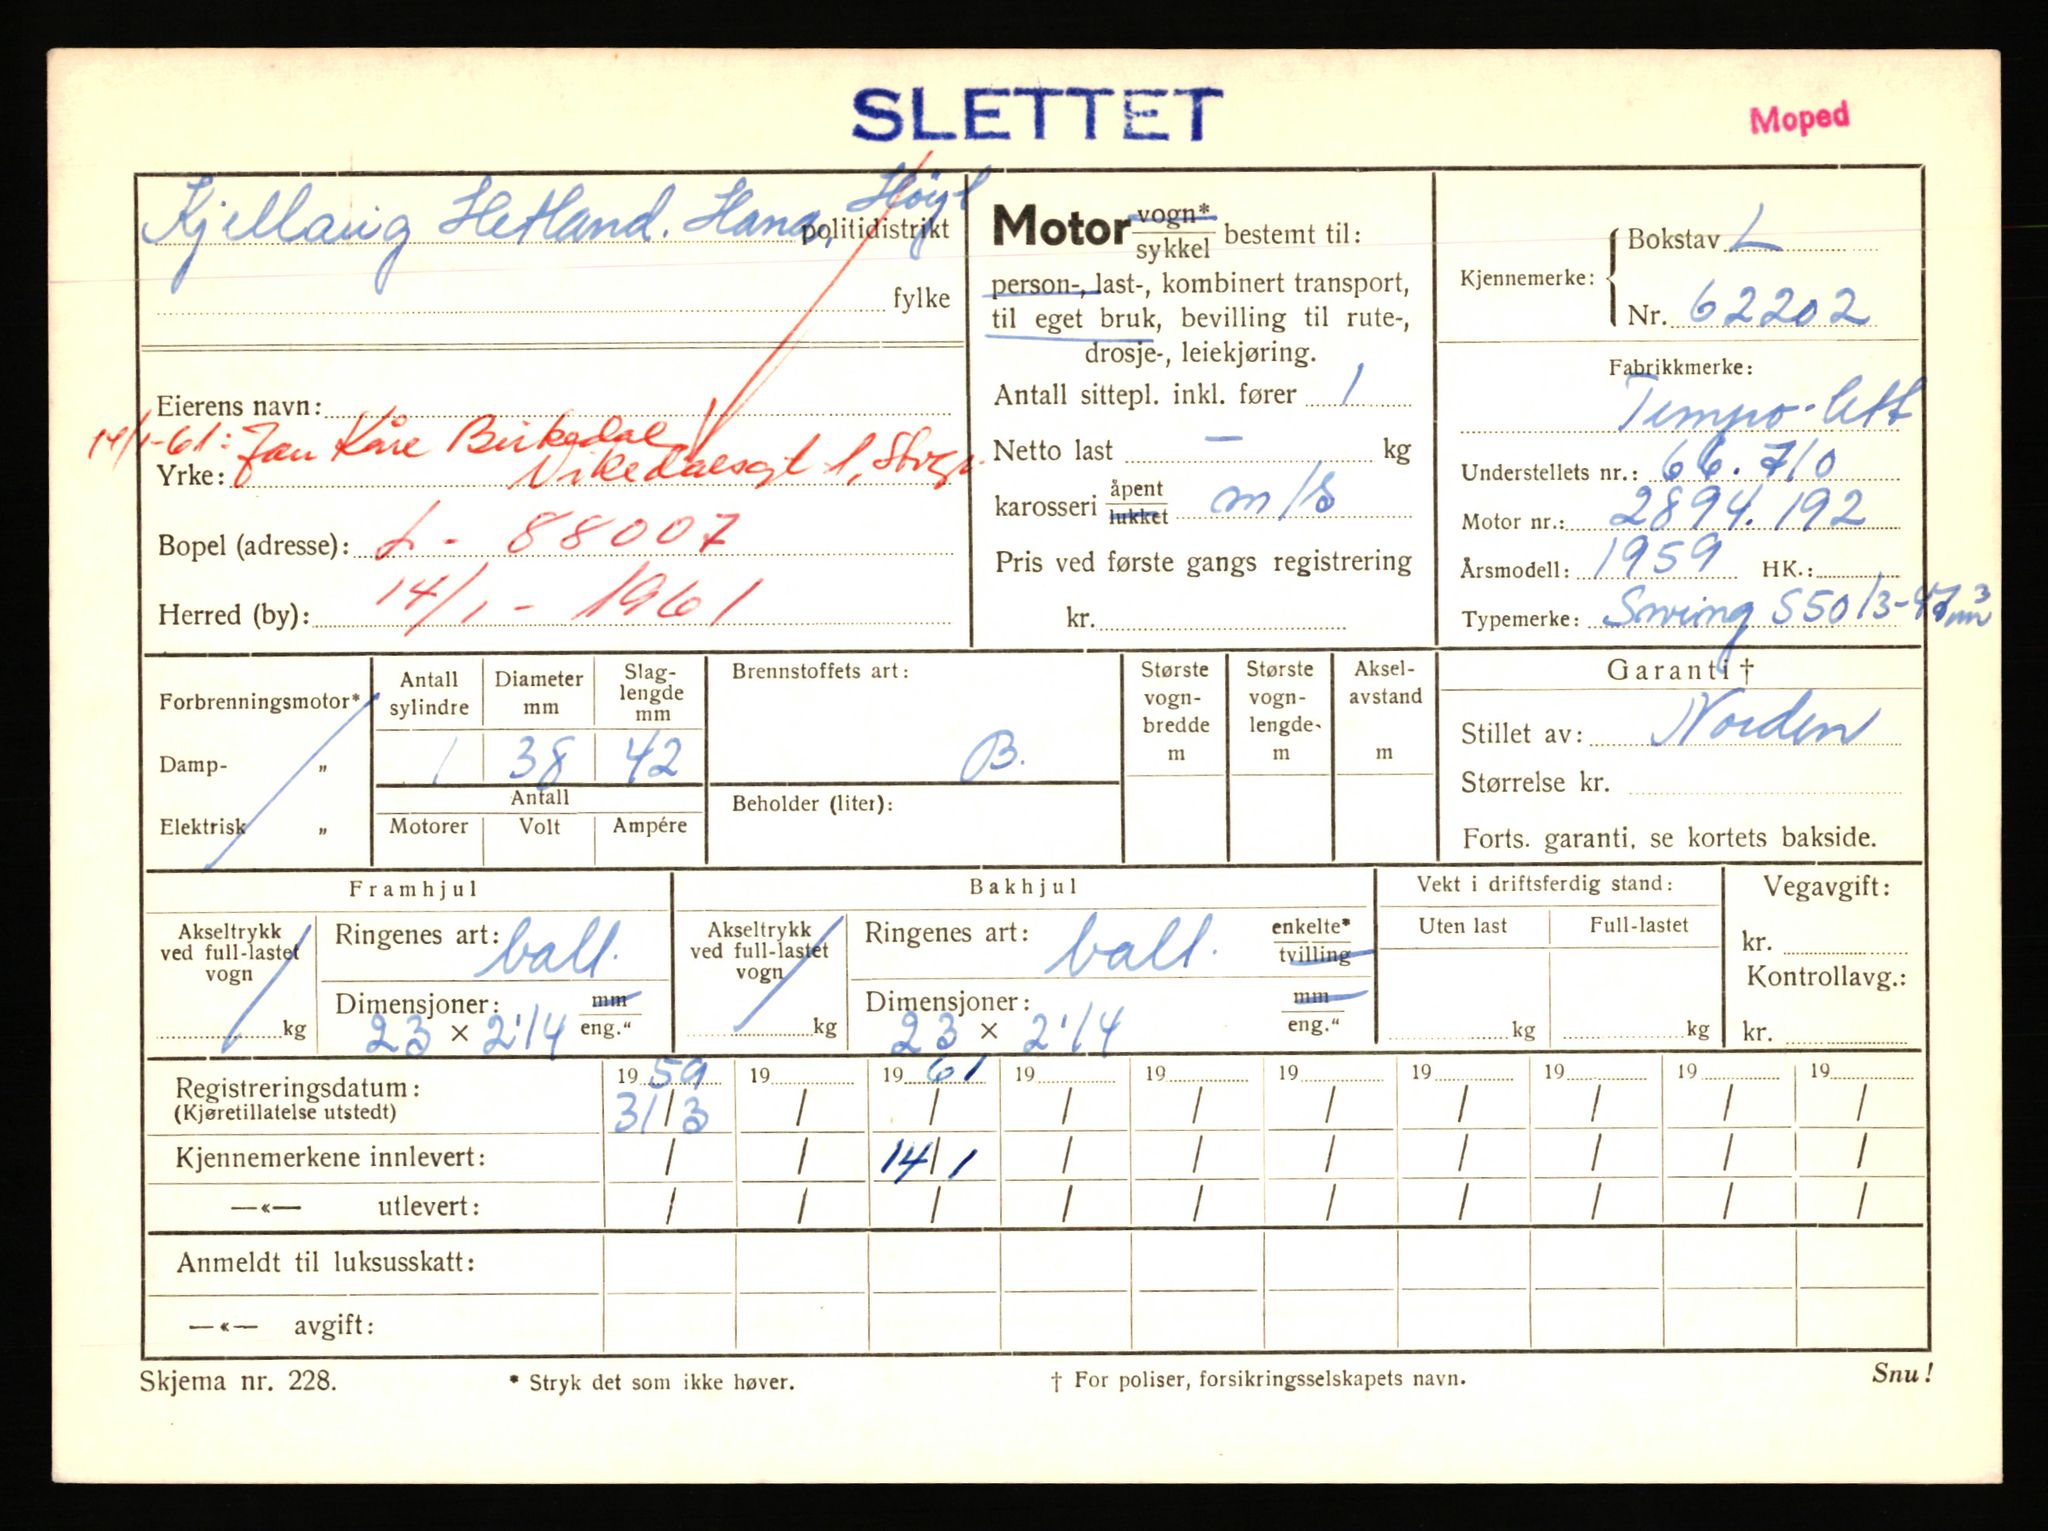 SLETTET
Moped
Kjellaug Hetland. Hana, Høyl.
politidistrikt
fylke
Eierens navn:
14/1-61: Jan Kåre Birkedal
Yrke: Vikedalsgt 1, Stvgr.
Bopel (adresse): L - 88007
Herred (by): 14/1 - 1961
Motor vogn* sykkel bestemt til:
person-, last-, kombinert transport,
til eget bruk, bevilling til rute-,
drosje-, leiekjøring.
Antall sittepl. inkl. fører 1
Netto last — kg
karosseri åpent lukket m/s
Pris ved første gangs registrering
kr.
Kjennemerke: Bokstav L
Nr. 62202
Fabrikkmerke:
Tempo-lett
Understellets nr.: 66.710
Motor nr.: 2894.192
Årsmodell: 1959 HK.:
Typemerke: Swing S50/3-47cm³
Forbrenningsmotor*
Damp- „
Elektrisk „
Antall sylindre
Diameter mm
Slag-lengde mm
1 38 42
Antall
Motorer Volt Ampére
Brennstoffets art:
B.
Beholder (liter):
Største vogn-bredde m
Største vogn-lengde m
Aksel-avstand m
Garanti †
Stillet av: Norden
Størrelse kr.
Forts. garanti, se kortets bakside.
Framhjul
Akseltrykk ved full-lastet vogn
kg
Ringenes art: ball.
Dimensjoner: mm eng."
23 × 2 1/4
Bakhjul
Akseltrykk ved full-lastet vogn
kg
Ringenes art: ball. enkelte* tvilling
Dimensjoner: mm eng."
23 × 2 1/4
Vekt i driftsferdig stand:
Uten last Full-lastet
kg kg
Vegavgift:
kr.
Kontrollavg.:
kr.
Registreringsdatum: 19 59 19 19 61 19 19 19 19 19 19 19
(Kjøretillatelse utstedt) 31/3 / / / / / / / / /
Kjennemerkene innlevert: / / 14/1 / / / / / / /
—«— utlevert: / / / / / / / / / /
Anmeldt til luksusskatt:
—«— avgift:
Skjema nr. 228. * Stryk det som ikke høver. † For poliser, forsikringsselskapets navn. Snu!